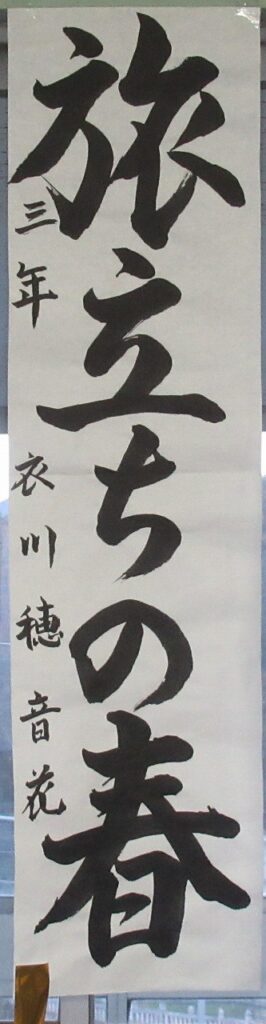 旅立ちの春
三年 衣川穂音花